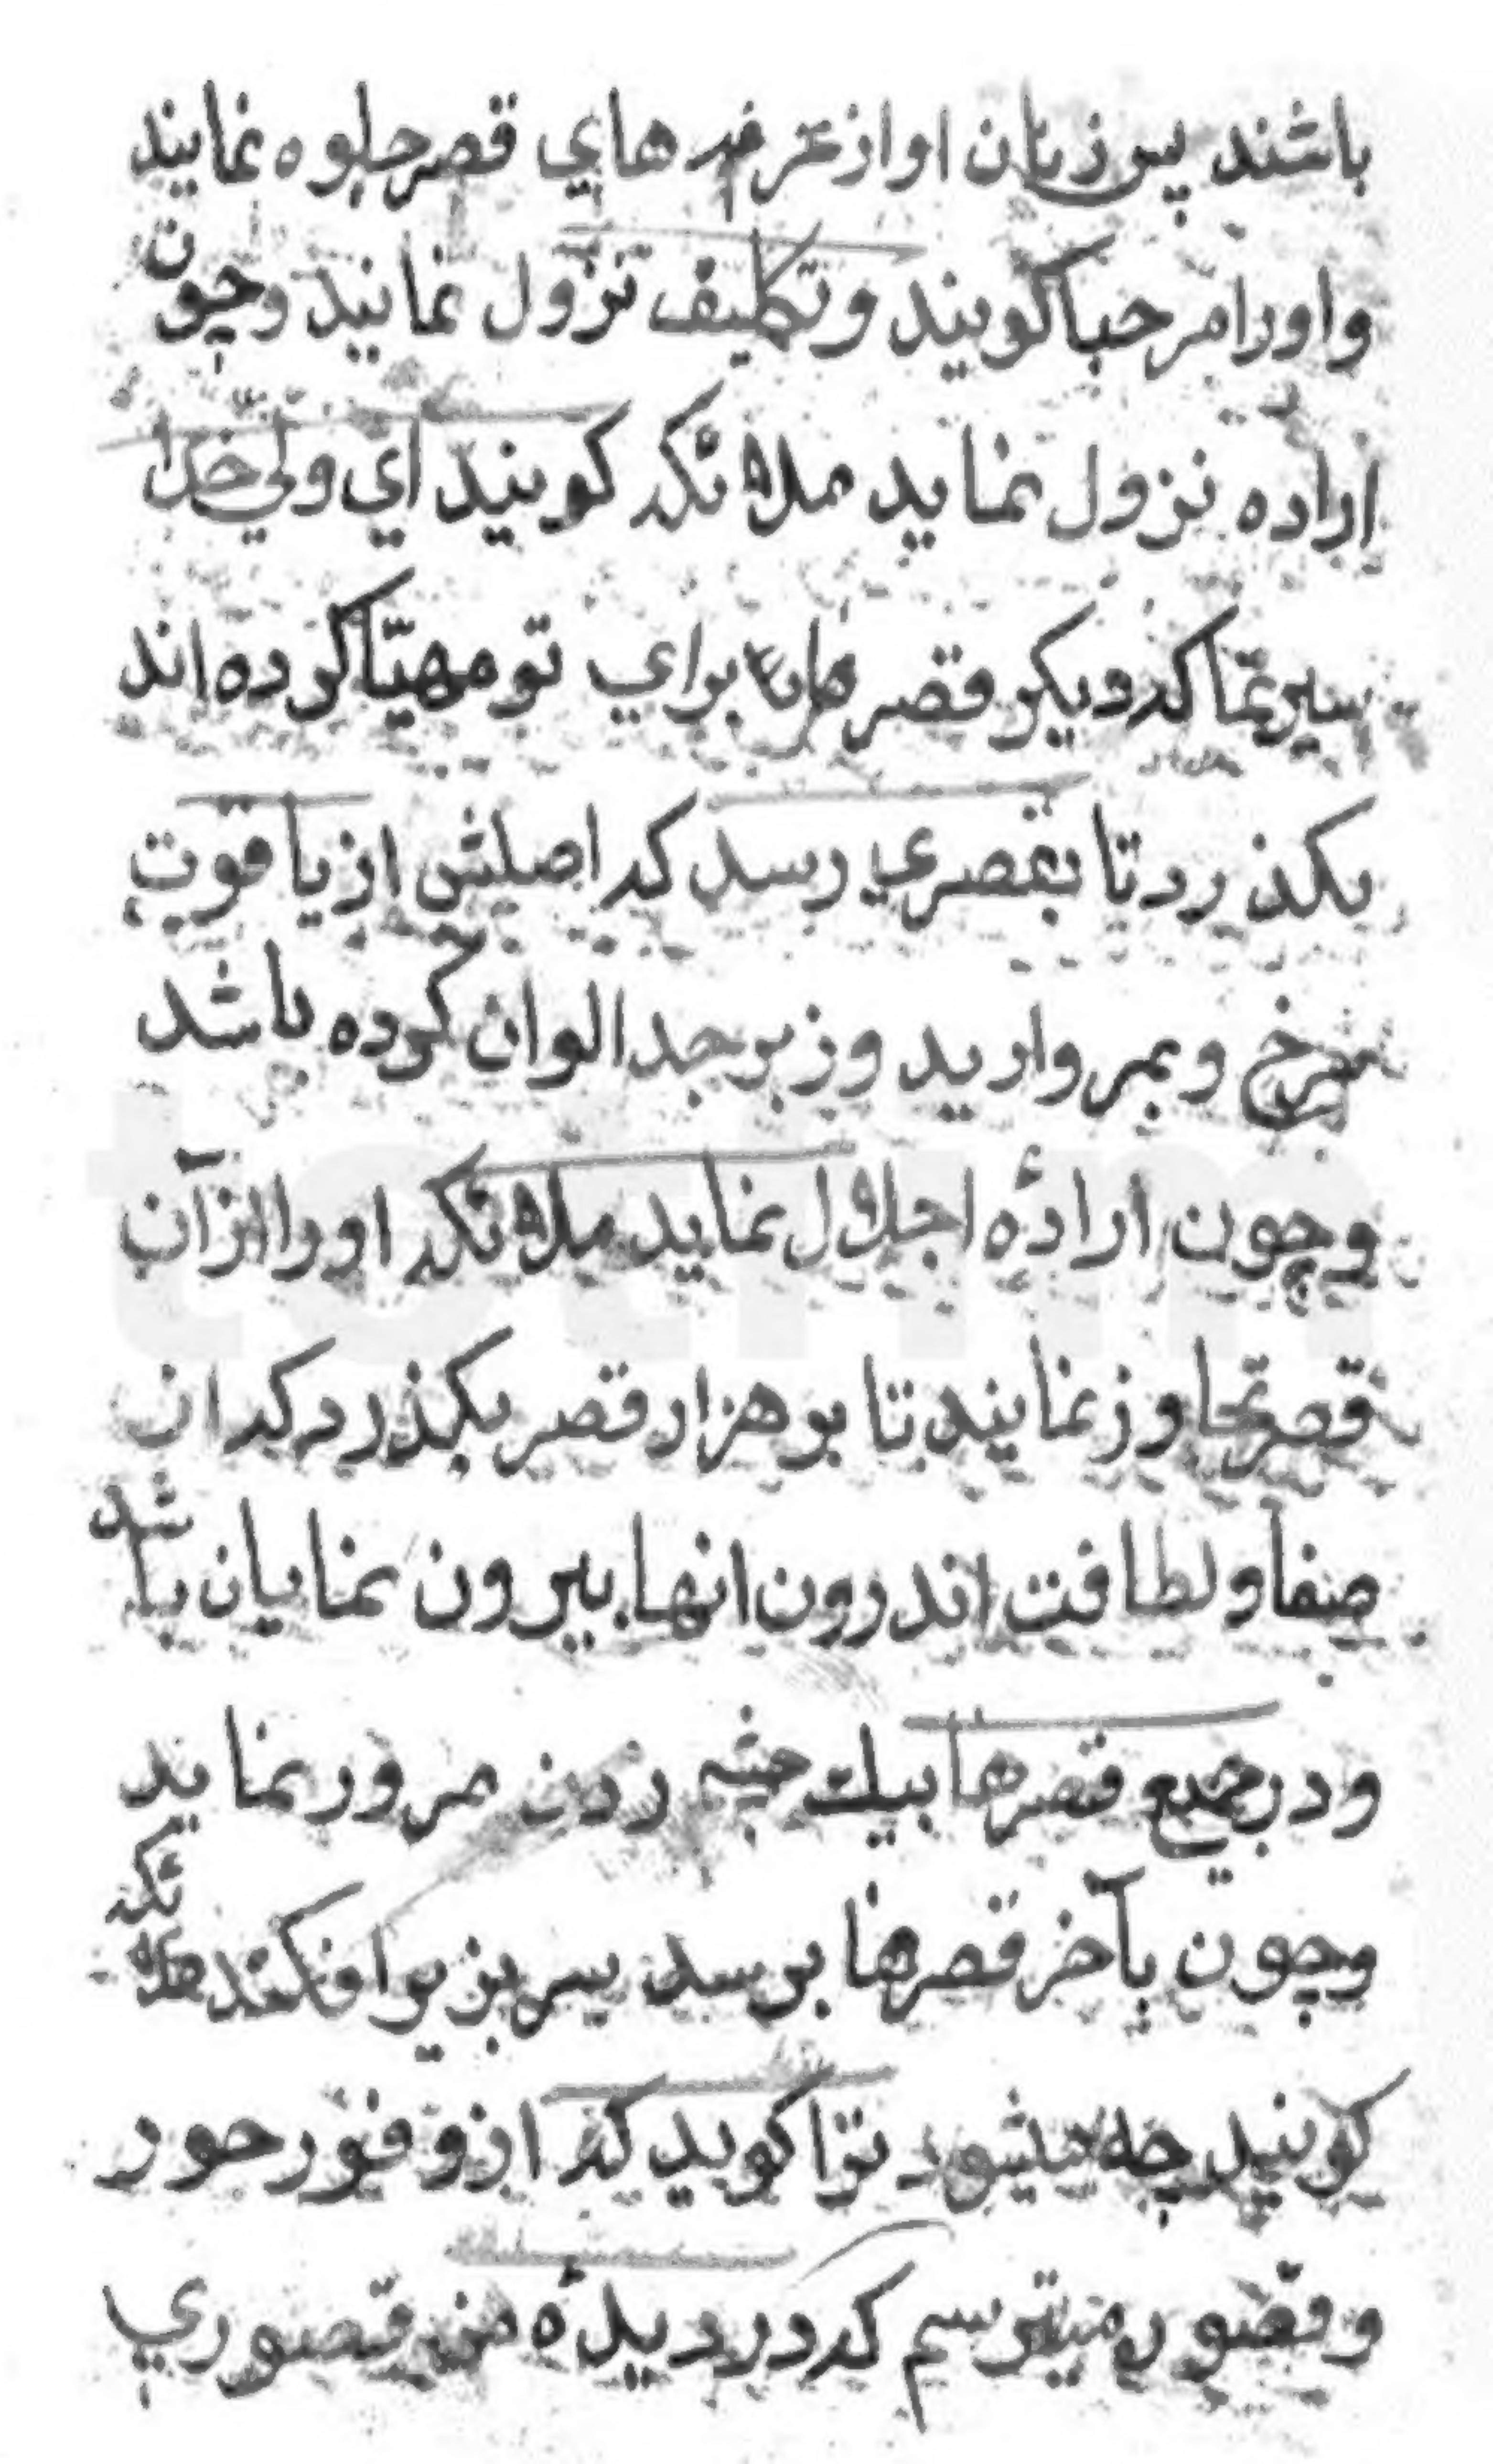 باشند پس زنان او از غرفه هاي قصر جلوه نمايند
و اورا مرحبا كويند و تكليف نزول نمايند وچون
اراده نزول نمايد ملائكه كويند اي ولي خدا
سير نما كه ديكر قصرها براي تو مهيّا كرده اند
بكذرد تا بقصري رسد كه اصلش از ياقوت
سرخ و بمرواريد و زبرجد الوان كرده باشد
وچون ارادهٔ اجلال نمايد ملائكه اورا از آن
قصر تجاوز نمايند تا بر هزار قصر بكذرد كه از
صفا و لطافت اندرون انها بيرون نمايان باشد
و در جميع قصرها بيك چشم زدن مرور نمايد
وچون بآخر قصرها برسد سر بزير افكند ملائكه
كويند چه ميشود ترا كويد كه از وفور حور
و قصور ميترسم كه در ديدهٔ من قصوري